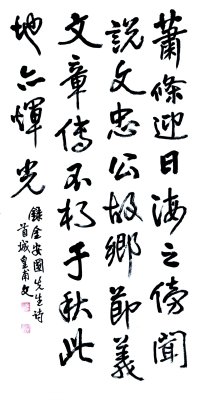 蕭條迎日海之傍聞
說文忠公故鄉節義
文章傳不朽千秋此
地亦煇光
錄金安國先生詩
首城皇甫文